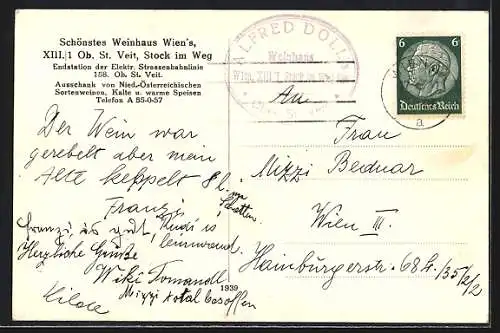 Schönstes Weinhaus Wien's,
XIII./1 Ob. St. Veit, Stock im Weg
Endstation der Elektr. Strassenbahnlinie
158. Ob. St. Veit.
Ausschank von Nied.-Österreichischen
Sortenweinen, Kalte u. warme Speisen
Telefon A 55-0-57
ALFRED DOLL
Weinhaus
Wien, XIII./1, Stock im Weg
An
6 6
Deutsches Reich
a
Der Wein war
gerebelt aber mein
Alte keppelt 8 l. im
Schatten.
Franzi
Franzi is gut, Rudi is
leinwand.
Herzliche Grüße
Wiki Tomandl
Hilde Mizzi total besoffen
1939
Frau
Mizzi Bednar
Wien III.
Hainburgerstr. 68 4/35/2/2